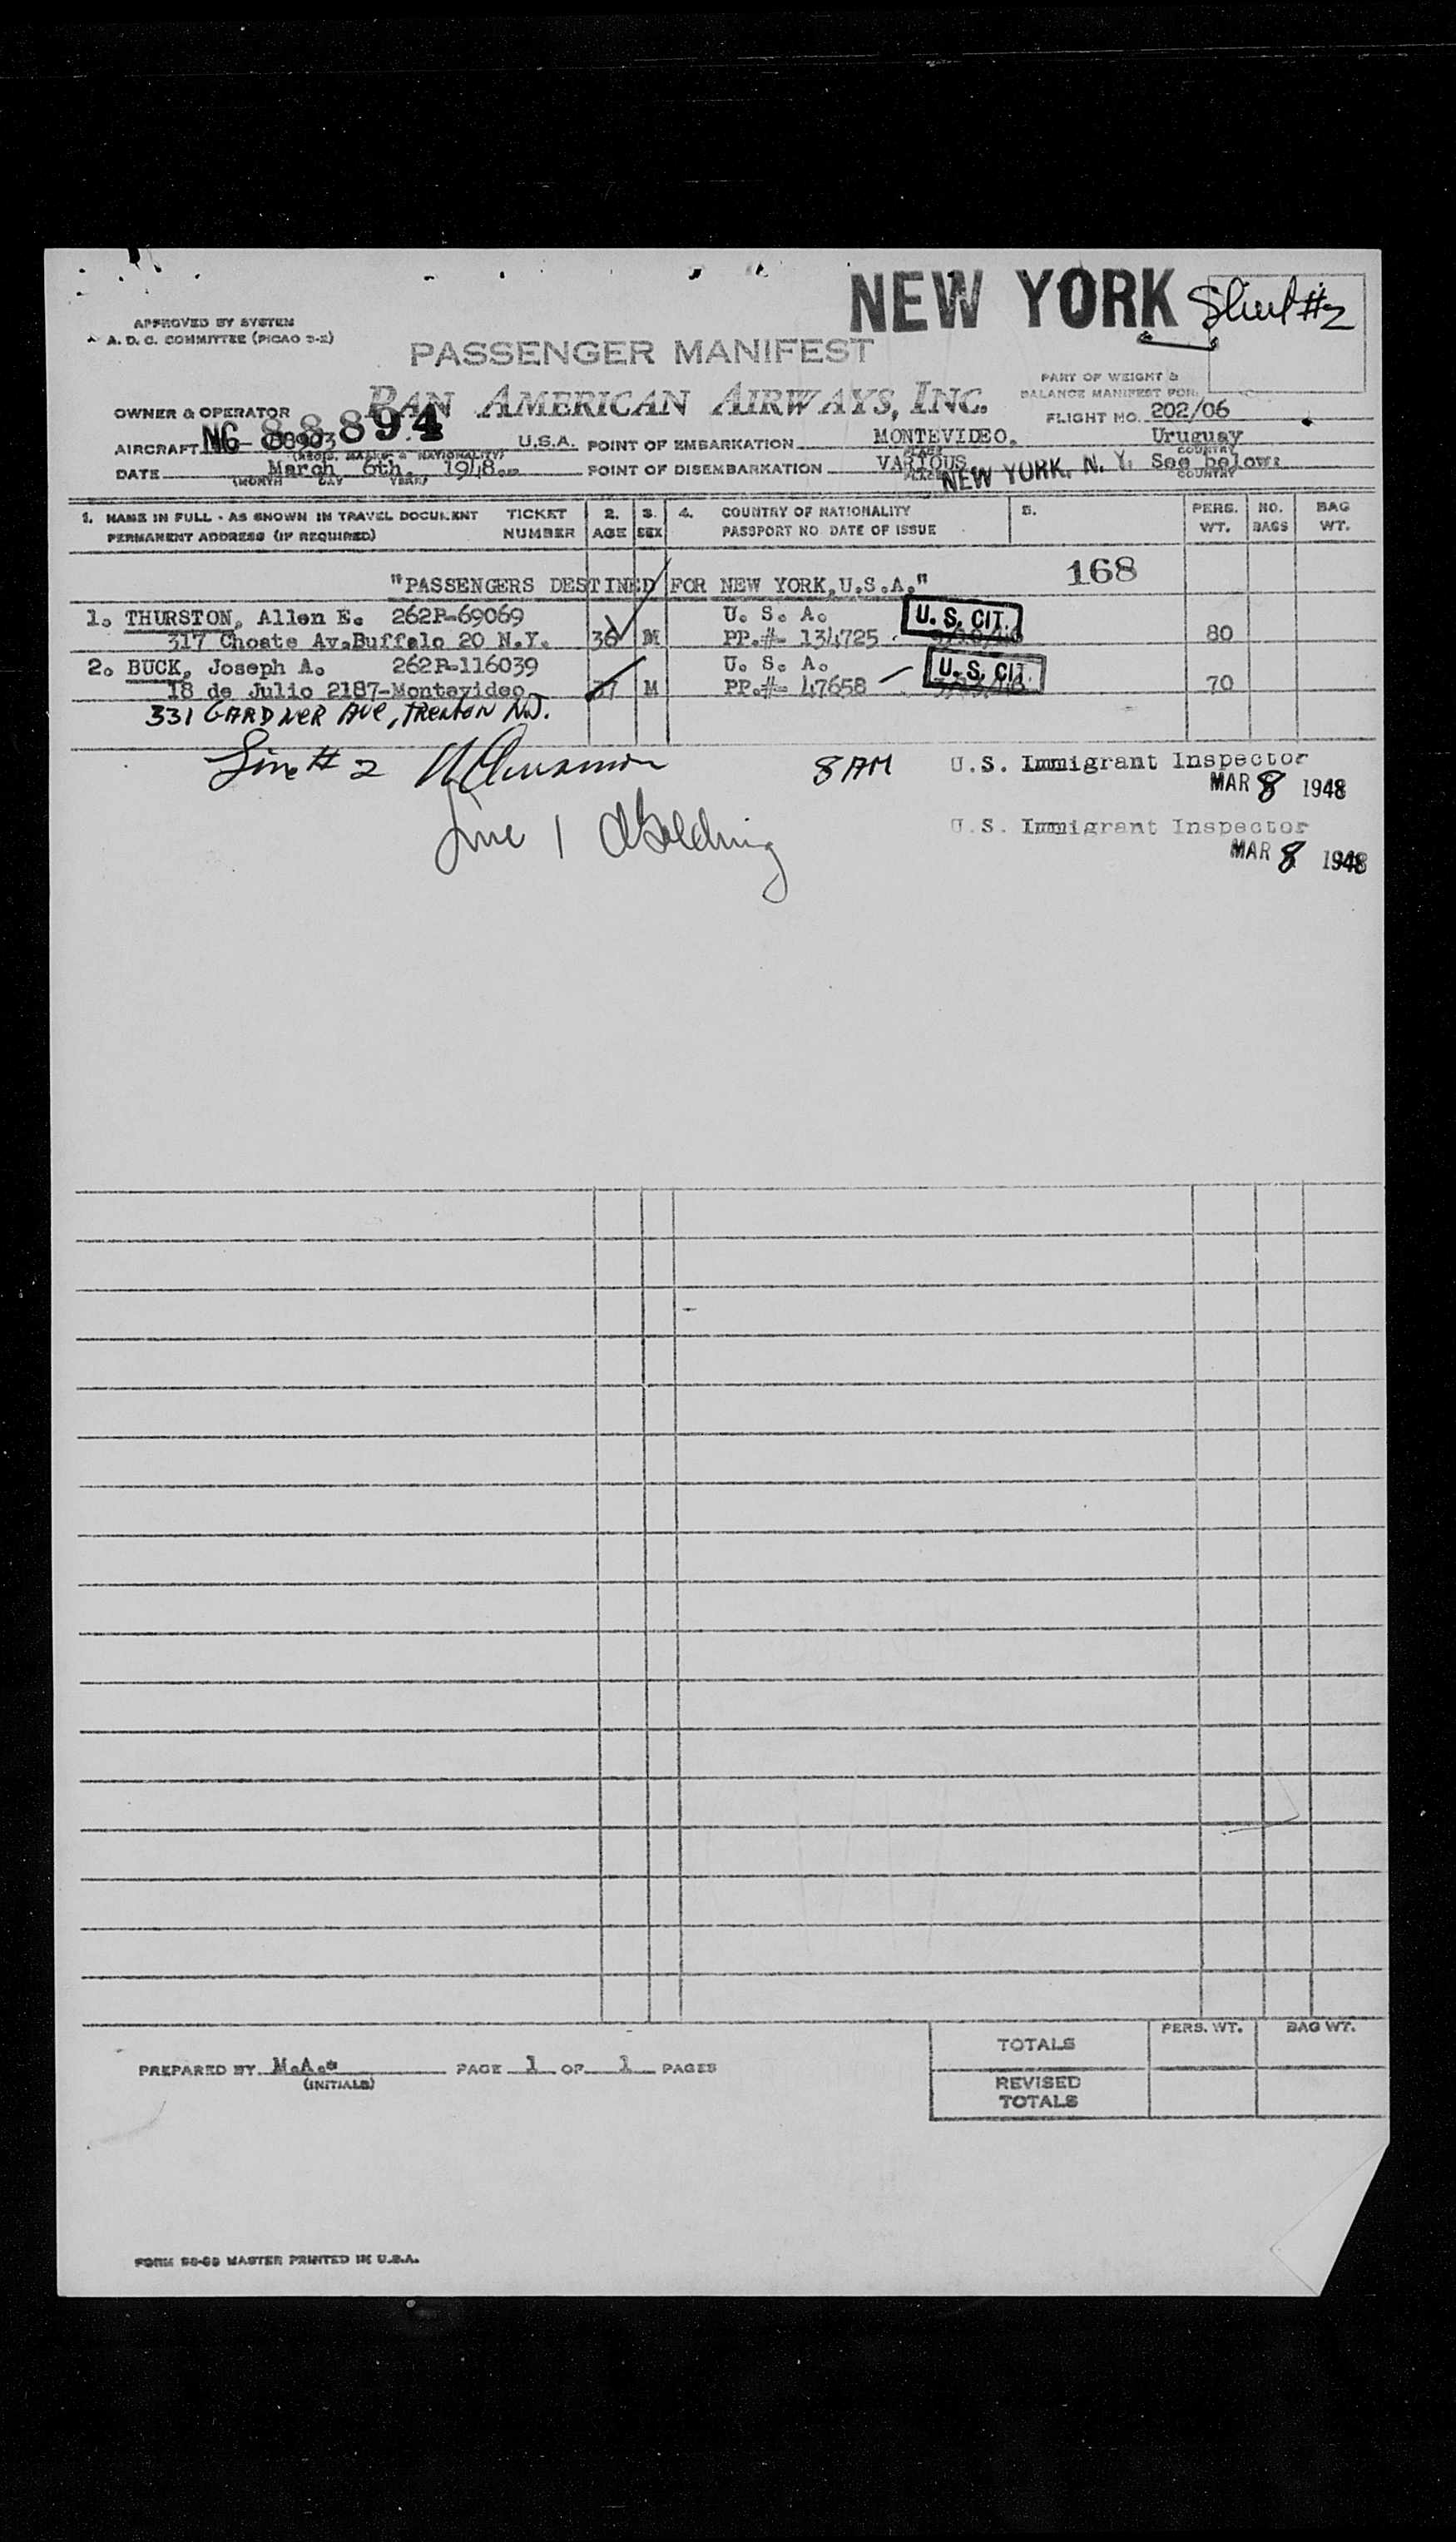 NEW YORK Sheet #2
APPROVED BY SYSTEM
A. D. C. COMMITTEE (PICAO 3-2)
PASSENGER MANIFEST
PART OF WEIGHT &
BALANCE MANIFEST FOR:
PAN AMERICAN AIRWAYS, INC.
OWNER & OPERATOR
FLIGHT NO. 202/06
AIRCRAFT NC- 88894 U.S.A. POINT OF EMBARKATION MONTEVIDEO. Uruguay
(REGIS. MARKS & NATIONALITY) PLACE COUNTRY
DATE March 6th. 1948. POINT OF DISEMBARKATION VARIOUS NEW YORK, N. Y. See below:
(MONTH DAY YEAR) PLACE COUNTRY
1. NAME IN FULL - AS SHOWN IN TRAVEL DOCUMENT TICKET 2. 3. 4. COUNTRY OF NATIONALITY 5. PERS. NO. BAG
PERMANENT ADDRESS (IF REQUIRED) NUMBER AGE SEX PASSPORT NO. DATE OF ISSUE WT. BAGS WT.
168
"PASSENGERS DESTINED FOR NEW YORK,U.S.A."
1. THURSTON, Allen E. 262P-69069 U. S. A. U. S. CIT.
317 Choate Av.Buffalo 20 N.Y. 36 M PP.#- 134725 80
2. BUCK, Joseph A. 262P-116039 U. S. A. U. S. CIT.
18 de Julio 2187-Montevideo M PP.#- 47658 70
331 GARDNER AVE, TRENTON N.J.
Line # 2 8 AM U.S. Immigrant Inspector
MAR 8 1948
Line 1 Golding U.S. Immigrant Inspector
MAR 8 1948
PERS. WT. BAG WT.
TOTALS
PREPARED BY M.A. PAGE 1 OF 1 PAGES
(INITIALS)
REVISED
TOTALS
MASTER PRINTED IN U.S.A.